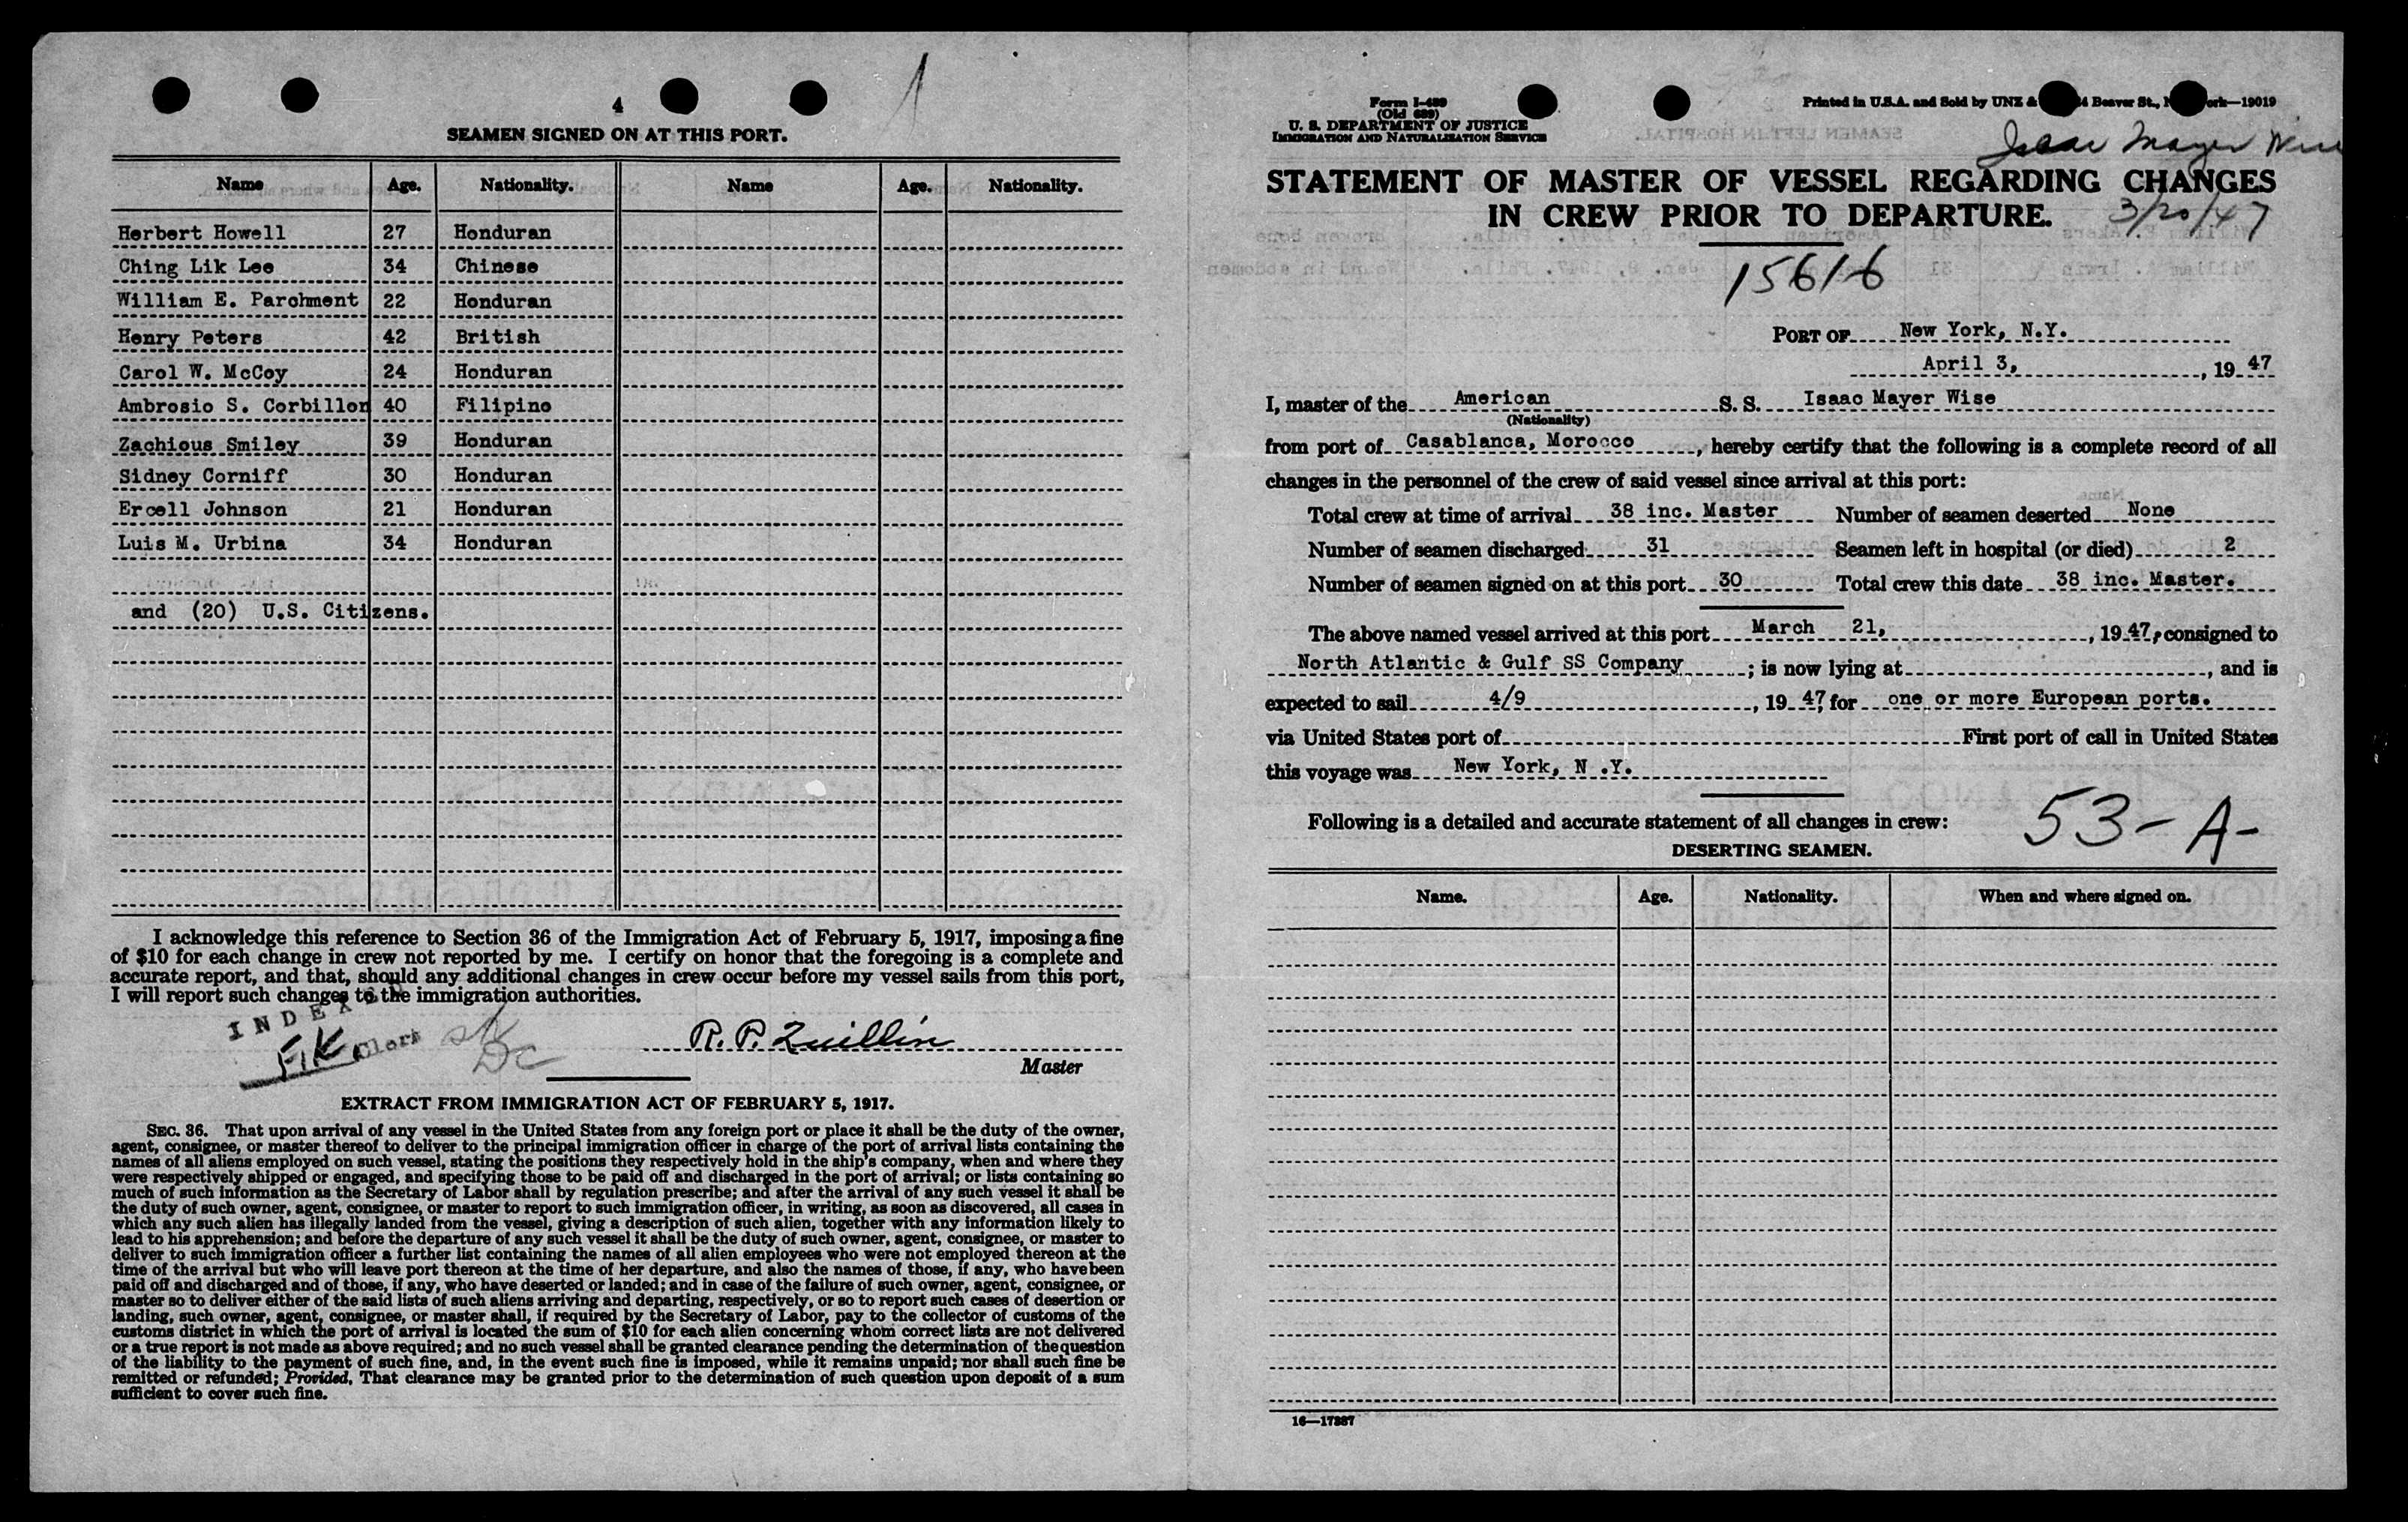 4
SEAMEN SIGNED ON AT THIS PORT.
Name Age. Nationality. Name Age. Nationality.
Herbert Howell 27 Honduran
Ching Lik Lee 34 Chinese
William E. Parchment 22 Honduran
Henry Peters 42 British
Carol W. McCoy 24 Honduran
Ambrosio S. Corbillon 40 Filipino
Zachious Smiley 39 Honduran
Sidney Corniff 30 Honduran
Ercell Johnson 21 Honduran
Luis M. Urbina 34 Honduran
and (20) U.S. Citizens.
I acknowledge this reference to Section 36 of the Immigration Act of February 5, 1917, imposing a fine
of $10 for each change in crew not reported by me. I certify on honor that the foregoing is a complete and
accurate report, and that, should any additional changes in crew occur before my vessel sails from this port,
I will report such changes to the immigration authorities.
INDEXED
F.K. Clerk
DC
R. P. Quillin
Master
EXTRACT FROM IMMIGRATION ACT OF FEBRUARY 5, 1917.
SEC. 36. That upon arrival of any vessel in the United States from any foreign port or place it shall be the duty of the owner,
agent, consignee, or master thereof to deliver to the principal immigration officer in charge of the port of arrival lists containing the
names of all aliens employed on such vessel, stating the positions they respectively hold in the ship's company, when and where they
were respectively shipped or engaged, and specifying those to be paid off and discharged in the port of arrival; or lists containing so
much of such information as the Secretary of Labor shall by regulation prescribe; and after the arrival of any such vessel it shall be
the duty of such owner, agent, consignee, or master to report to such immigration officer, in writing, as soon as discovered, all cases in
which any such alien has illegally landed from the vessel, giving a description of such alien, together with any information likely to
lead to his apprehension; and before the departure of any such vessel it shall be the duty of such owner, agent, consignee, or master to
deliver to such immigration officer a further list containing the names of all alien employees who were not employed thereon at the
time of the arrival but who will leave port thereon at the time of her departure, and also the names of those, if any, who have been
paid off and discharged and of those, if any, who have deserted or landed; and in case of the failure of such owner, agent, consignee, or
master so to deliver either of the said lists of such aliens arriving and departing, respectively, or so to report such cases of desertion or
landing, such owner, agent, consignee, or master shall, if required by the Secretary of Labor, pay to the collector of customs of the
customs district in which the port of arrival is located the sum of $10 for each alien concerning whom correct lists are not delivered
or a true report is not made as above required; and no such vessel shall be granted clearance pending the determination of the question
of the liability to the payment of such fine, and, in the event such fine is imposed, while it remains unpaid; nor shall such fine be
remitted or refunded; Provided, That clearance may be granted prior to the determination of such question upon deposit of a sum
sufficient to cover such fine.
Form I-489
(Old 689)
U. S. DEPARTMENT OF JUSTICE
IMMIGRATION AND NATURALIZATION SERVICE
Printed in U.S.A. and Sold by UNZ & Beaver St., 19019
Isaac Mayer Wise
STATEMENT OF MASTER OF VESSEL REGARDING CHANGES
IN CREW PRIOR TO DEPARTURE.
3/20/47
15616
PORT OF New York, N.Y.
April 3, , 19 47
I, master of the American S. S. Isaac Mayer Wise
(Nationality)
from port of Casablanca, Morocco , hereby certify that the following is a complete record of all
changes in the personnel of the crew of said vessel since arrival at this port:
Total crew at time of arrival 38 inc. Master Number of seamen deserted None
Number of seamen discharged 31 Seamen left in hospital (or died) 2
Number of seamen signed on at this port 30 Total crew this date 38 inc. Master.
The above named vessel arrived at this port March 21, , 19 47, consigned to
North Atlantic & Gulf SS Company ; is now lying at , and is
expected to sail 4/9 , 19 47, for one or more European ports.
via United States port of First port of call in United States
this voyage was New York, N .Y.
Following is a detailed and accurate statement of all changes in crew:
53-A-
DESERTING SEAMEN.
Name. Age. Nationality. When and where signed on.
16—17387